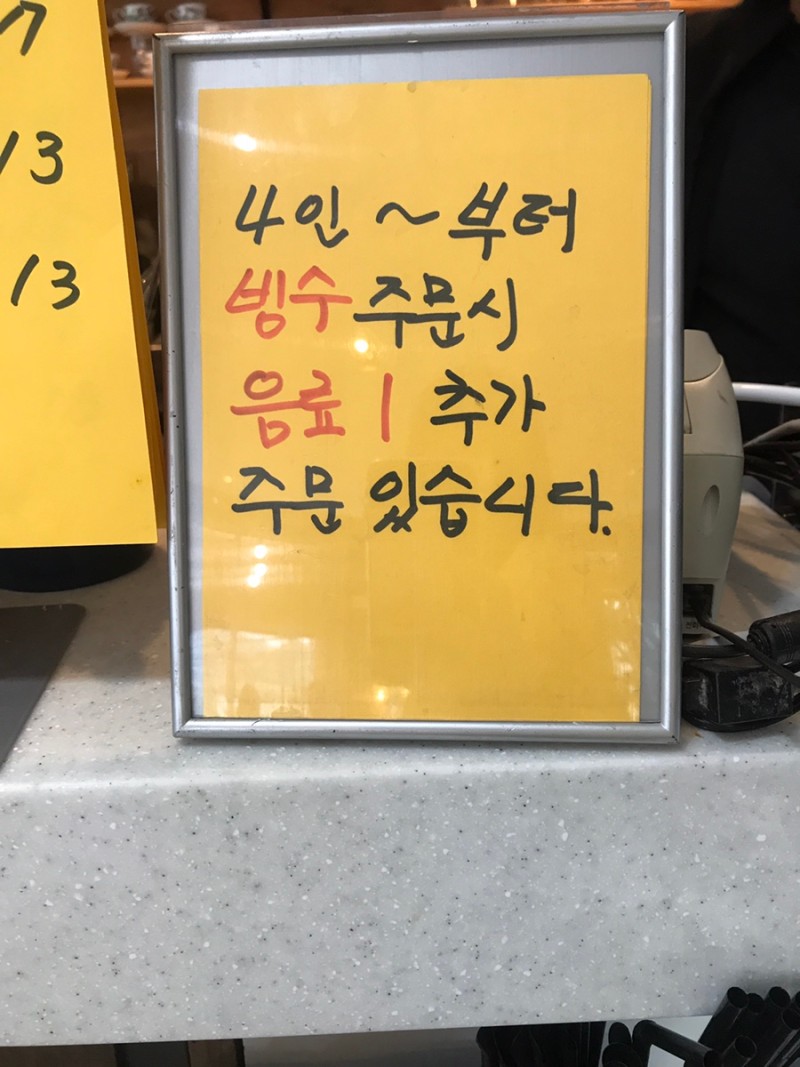 7
13
13
4인 ~ 부터
빙수 주문시
음료 1 추가
주문 있습니다.